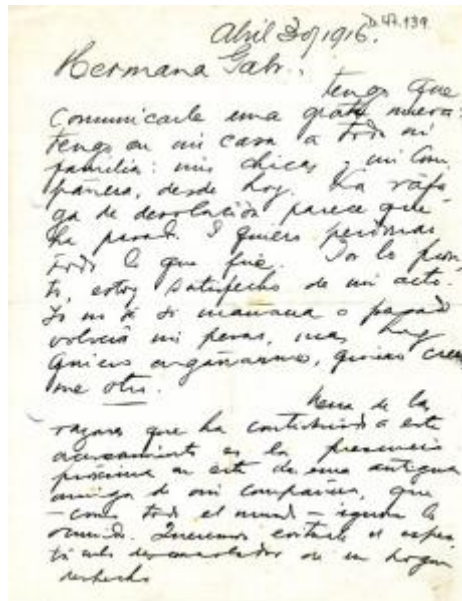 D.47.139.
Abril 30/916.
Hermana Gabr.:
tengo que
comunicarle una grata nueva:
tengo en mi casa a toda mi
familia: mis chicas y mi com
pañera, desde hoy. La ráfa
ga de desolación parece que
ha pasado. I quiero perdonar
todo lo que fué. Por lo pron
to, estoy satisfecho de mi acto.
Yo no sé si mañana o pasado
volverá mi pena, mas hoy
quiero engañarme, quiero creer
me otro.
Una de las
razones que ha contribuido a este
acercamiento es la presencia
próxima en esta de una antigua
amiga de mi compañera, que
—como todo el mundo— ignora lo
ocurrido. Queremos evitarle el espec
táculo desconsolador de un hogar
deshecho